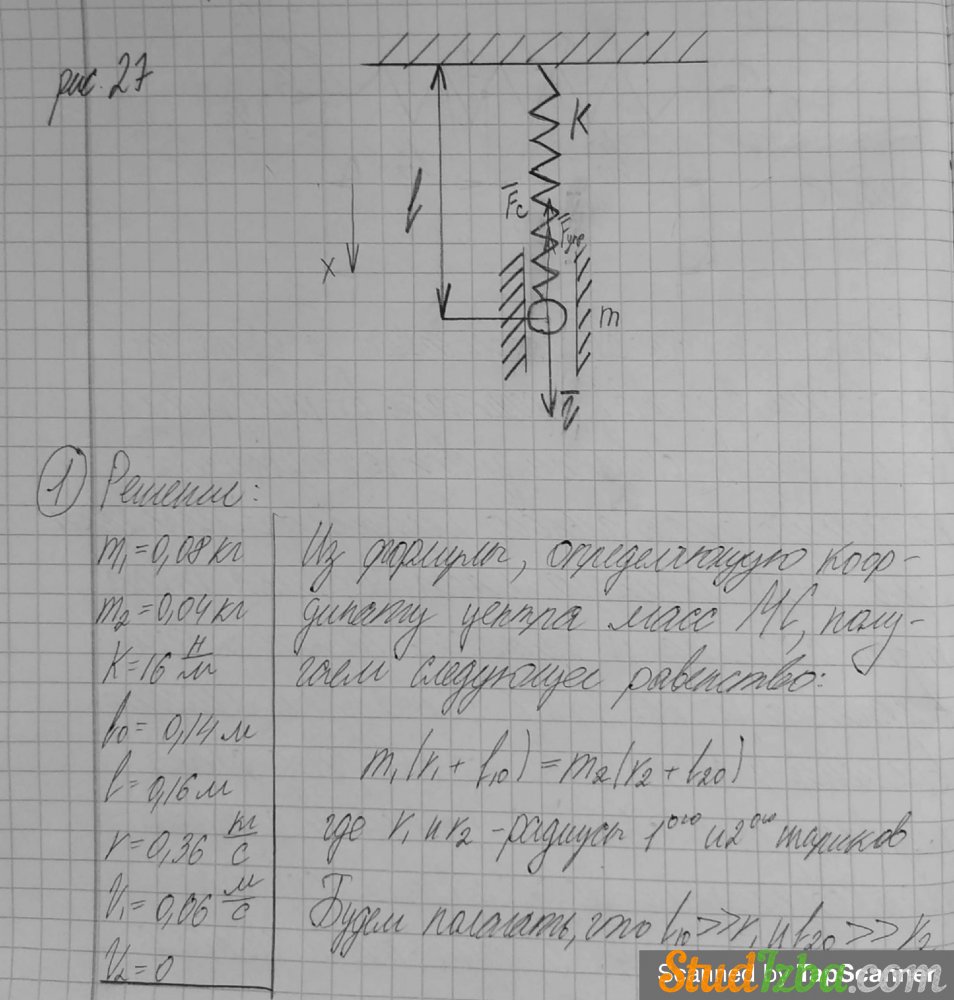 рис. 27
K
l
F̅c
F̅упр
x
m
V̅
① Решение:
m₁=0,08 кг
m₂=0,04 кг
K=16 н/м
l₀=0,14 м
l=0,16 м
r=0,36 кг/с
V₁=0,06 м/с
V₂=0
Из формулы, определяющую коор-
динату центра масс МС, полу-
чаем следующее равенство:
m₁(r₁+l₁₀)=m₂(r₂+l₂₀)
где r₁ и r₂ - радиусы 1ого и 2ого шариков
Будем полагать, что l₁₀>>r₁ и l₂₀>>r₂
StudIzba.com
Scanned by TapScanner